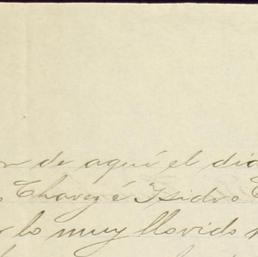 de aquí el dia
Chavez é Isidro
lo muy llovido